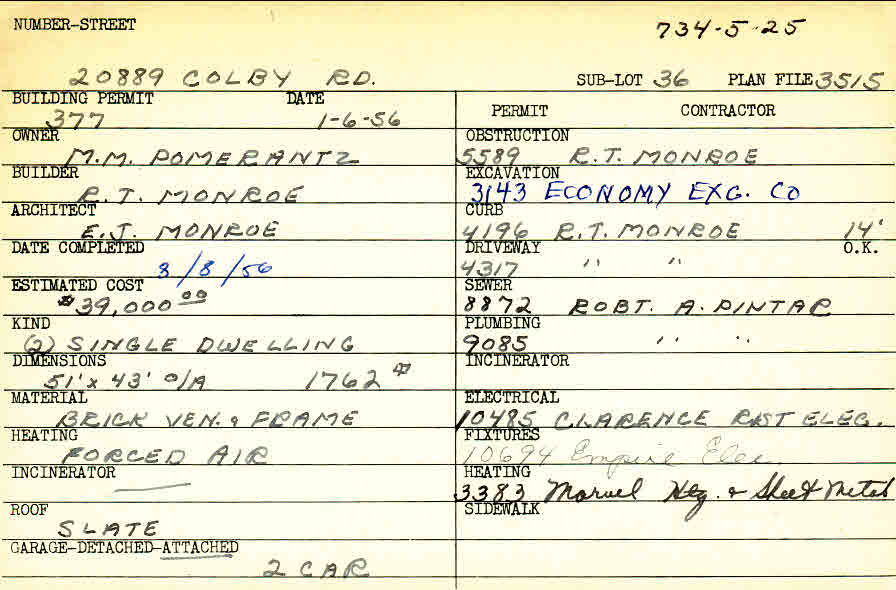 NUMBER-STREET
734-5-25
20889 COLBY RD.
SUB-LOT 36 PLAN FILE 3515
BUILDING PERMIT DATE
377 1-6-56
OWNER
M.M. POMERANTZ
BUILDER
R.T. MONROE
ARCHITECT
E.J. MONROE
DATE COMPLETED
8/8/56
ESTIMATED COST
$39,000 00
KIND
(2) SINGLE DWELLING
DIMENSIONS
51' x 43' O/A 1762
MATERIAL
BRICK VEN. & FRAME
HEATING
FORCED AIR
INCINERATOR
ROOF
SLATE
GARAGE-DETACHED-ATTACHED
2 CAR
PERMIT CONTRACTOR
OBSTRUCTION
5589 R.T. MONROE
EXCAVATION
3143 ECONOMY EXG. CO
CURB
4196 R.T. MONROE 14'
DRIVEWAY O.K.
4317 " "
SEWER
8872 ROBT. A. PINTAR
PLUMBING
9085 " "
INCINERATOR
ELECTRICAL
10485 CLARENCE RIST ELEC.
FIXTURES
10694 Empire Elec
HEATING
3383 Marvel Htg. & Sheet Metal
SIDEWALK